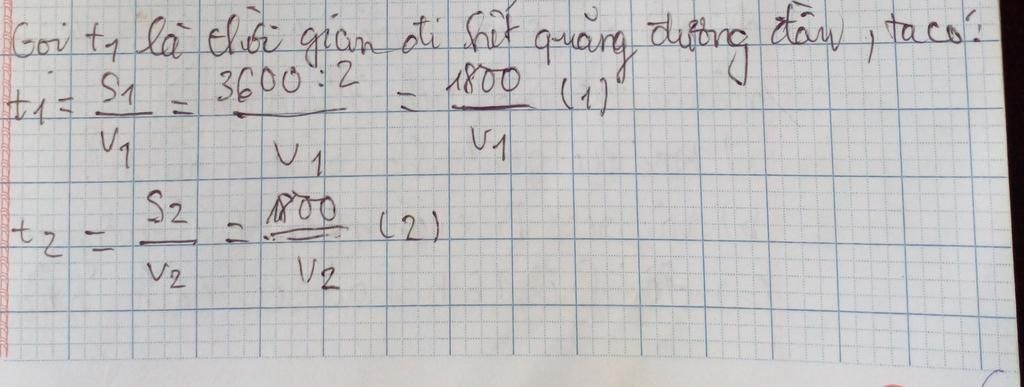 Gọi t1 là thời gian đi hết quãng đường đầu, ta có:
t1 = S1/V1 = 3600:2/V1 = 1800/V1 (1)
t2 = S2/V2 = 1800/V2 (2)